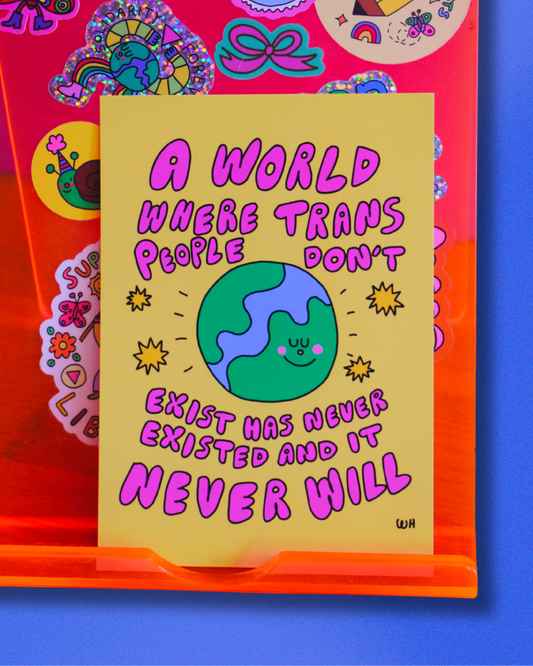 SOLIDARITY FOREVER
A WORLD
WHERE TRANS
PEOPLE DON'T
EXIST HAS NEVER
EXISTED AND IT
NEVER WILL
WH